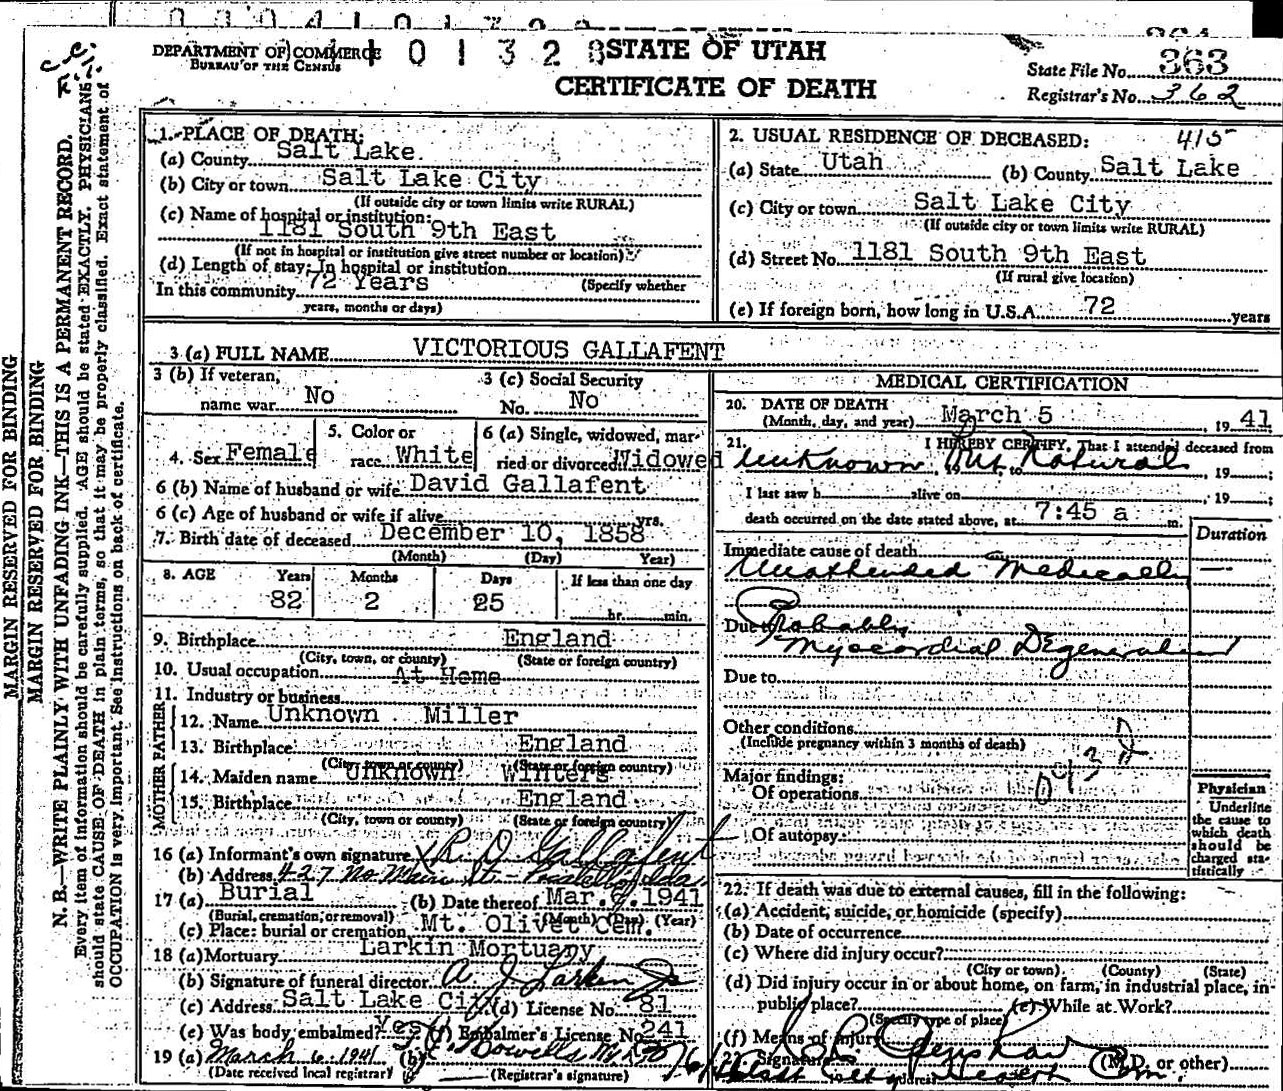 DEPARTMENT OF COMMERCE
BUREAU OF THE CENSUS
101328
STATE OF UTAH
CERTIFICATE OF DEATH
State File No. 363
Registrar's No. 362
MARGIN RESERVED FOR BINDING
MARGIN RESERVED FOR BINDING
N. B.—WRITE PLAINLY WITH UNFADING INK—THIS IS A PERMANENT RECORD.
Every item of information should be carefully supplied. AGE should be stated EXACTLY. PHYSICIANS
should state CAUSE OF DEATH in plain terms, so that it may be properly classified. Exact statement of
OCCUPATION is very important. See instructions on back of certificate.
1. PLACE OF DEATH:
(a) County Salt Lake
(b) City or town Salt Lake City
(If outside city or town limits write RURAL)
(c) Name of hospital or institution:
1181 South 9th East
(If not in hospital or institution give street number or location)
(d) Length of stay: In hospital or institution
In this community 72 Years (Specify whether
years, months or days)
2. USUAL RESIDENCE OF DECEASED: 415
(a) State Utah (b) County Salt Lake
(c) City or town Salt Lake City
(If outside city or town limits write RURAL)
(d) Street No. 1181 South 9th East
(If rural give location)
(e) If foreign born, how long in U.S.A. 72 years
3 (a) FULL NAME VICTORIOUS GALLAFENT
3 (b) If veteran, name war No
3 (c) Social Security No. No
4. Sex Female
5. Color or race White
6 (a) Single, widowed, married or divorced Widowed
6 (b) Name of husband or wife David Gallafent
6 (c) Age of husband or wife if alive yrs.
7. Birth date of deceased December 10, 1858
(Month) (Day) Year)
8. AGE Years Months Days If less than one day
82 2 25 hr. min.
9. Birthplace England
(City, town, or county) (State or foreign country)
10. Usual occupation At Home
11. Industry or business
FATHER
12. Name Unknown Miller
13. Birthplace England
(City, town or county) (State or foreign country)
MOTHER
14. Maiden name Unknown Winters
15. Birthplace England
(City, town or county) (State or foreign country)
16 (a) Informant's own signature R. D. Gallafent
(b) Address 427 No. Main St.
17 (a) Burial (b) Date thereof Mar. 1941
(Burial, cremation, or removal) (Month) (Day) (Year)
(c) Place: burial or cremation Mt. Olivet Cem.
18 (a) Mortuary Larkin Mortuary
(b) Signature of funeral director A. J. Larkin
(c) Address Salt Lake City (d) License No. 81
(e) Was body embalmed? Yes (f) Embalmer's License No. 241
19 (a) March 6 1941 (b)
(Date received local registrar) (Registrar's signature)
MEDICAL CERTIFICATION
20. DATE OF DEATH
(Month, day, and year) March 5, 1941
21. I HEREBY CERTIFY, That I attended deceased from
Unknown, 19 to But Natural, 19 ;
I last saw h alive on , 19 ;
death occurred on the date stated above, at 7:45 a m.
Duration
Immediate cause of death
Unattended Medically
Due to Probably
Myocardial Degeneration
Due to
Other conditions
(Include pregnancy within 3 months of death)
Major findings:
Of operations
Of autopsy
Physician
Underline
the cause to
which death
should be
charged sta-
tistically
22. If death was due to external causes, fill in the following:
(a) Accident, suicide, or homicide (specify)
(b) Date of occurrence
(c) Where did injury occur?
(City or town) (County) (State)
(d) Did injury occur in or about home, on farm, in industrial place, in
public place? (e) While at Work?
(Specify type of place)
(f) Means of injury
Signature (M.D. or other)